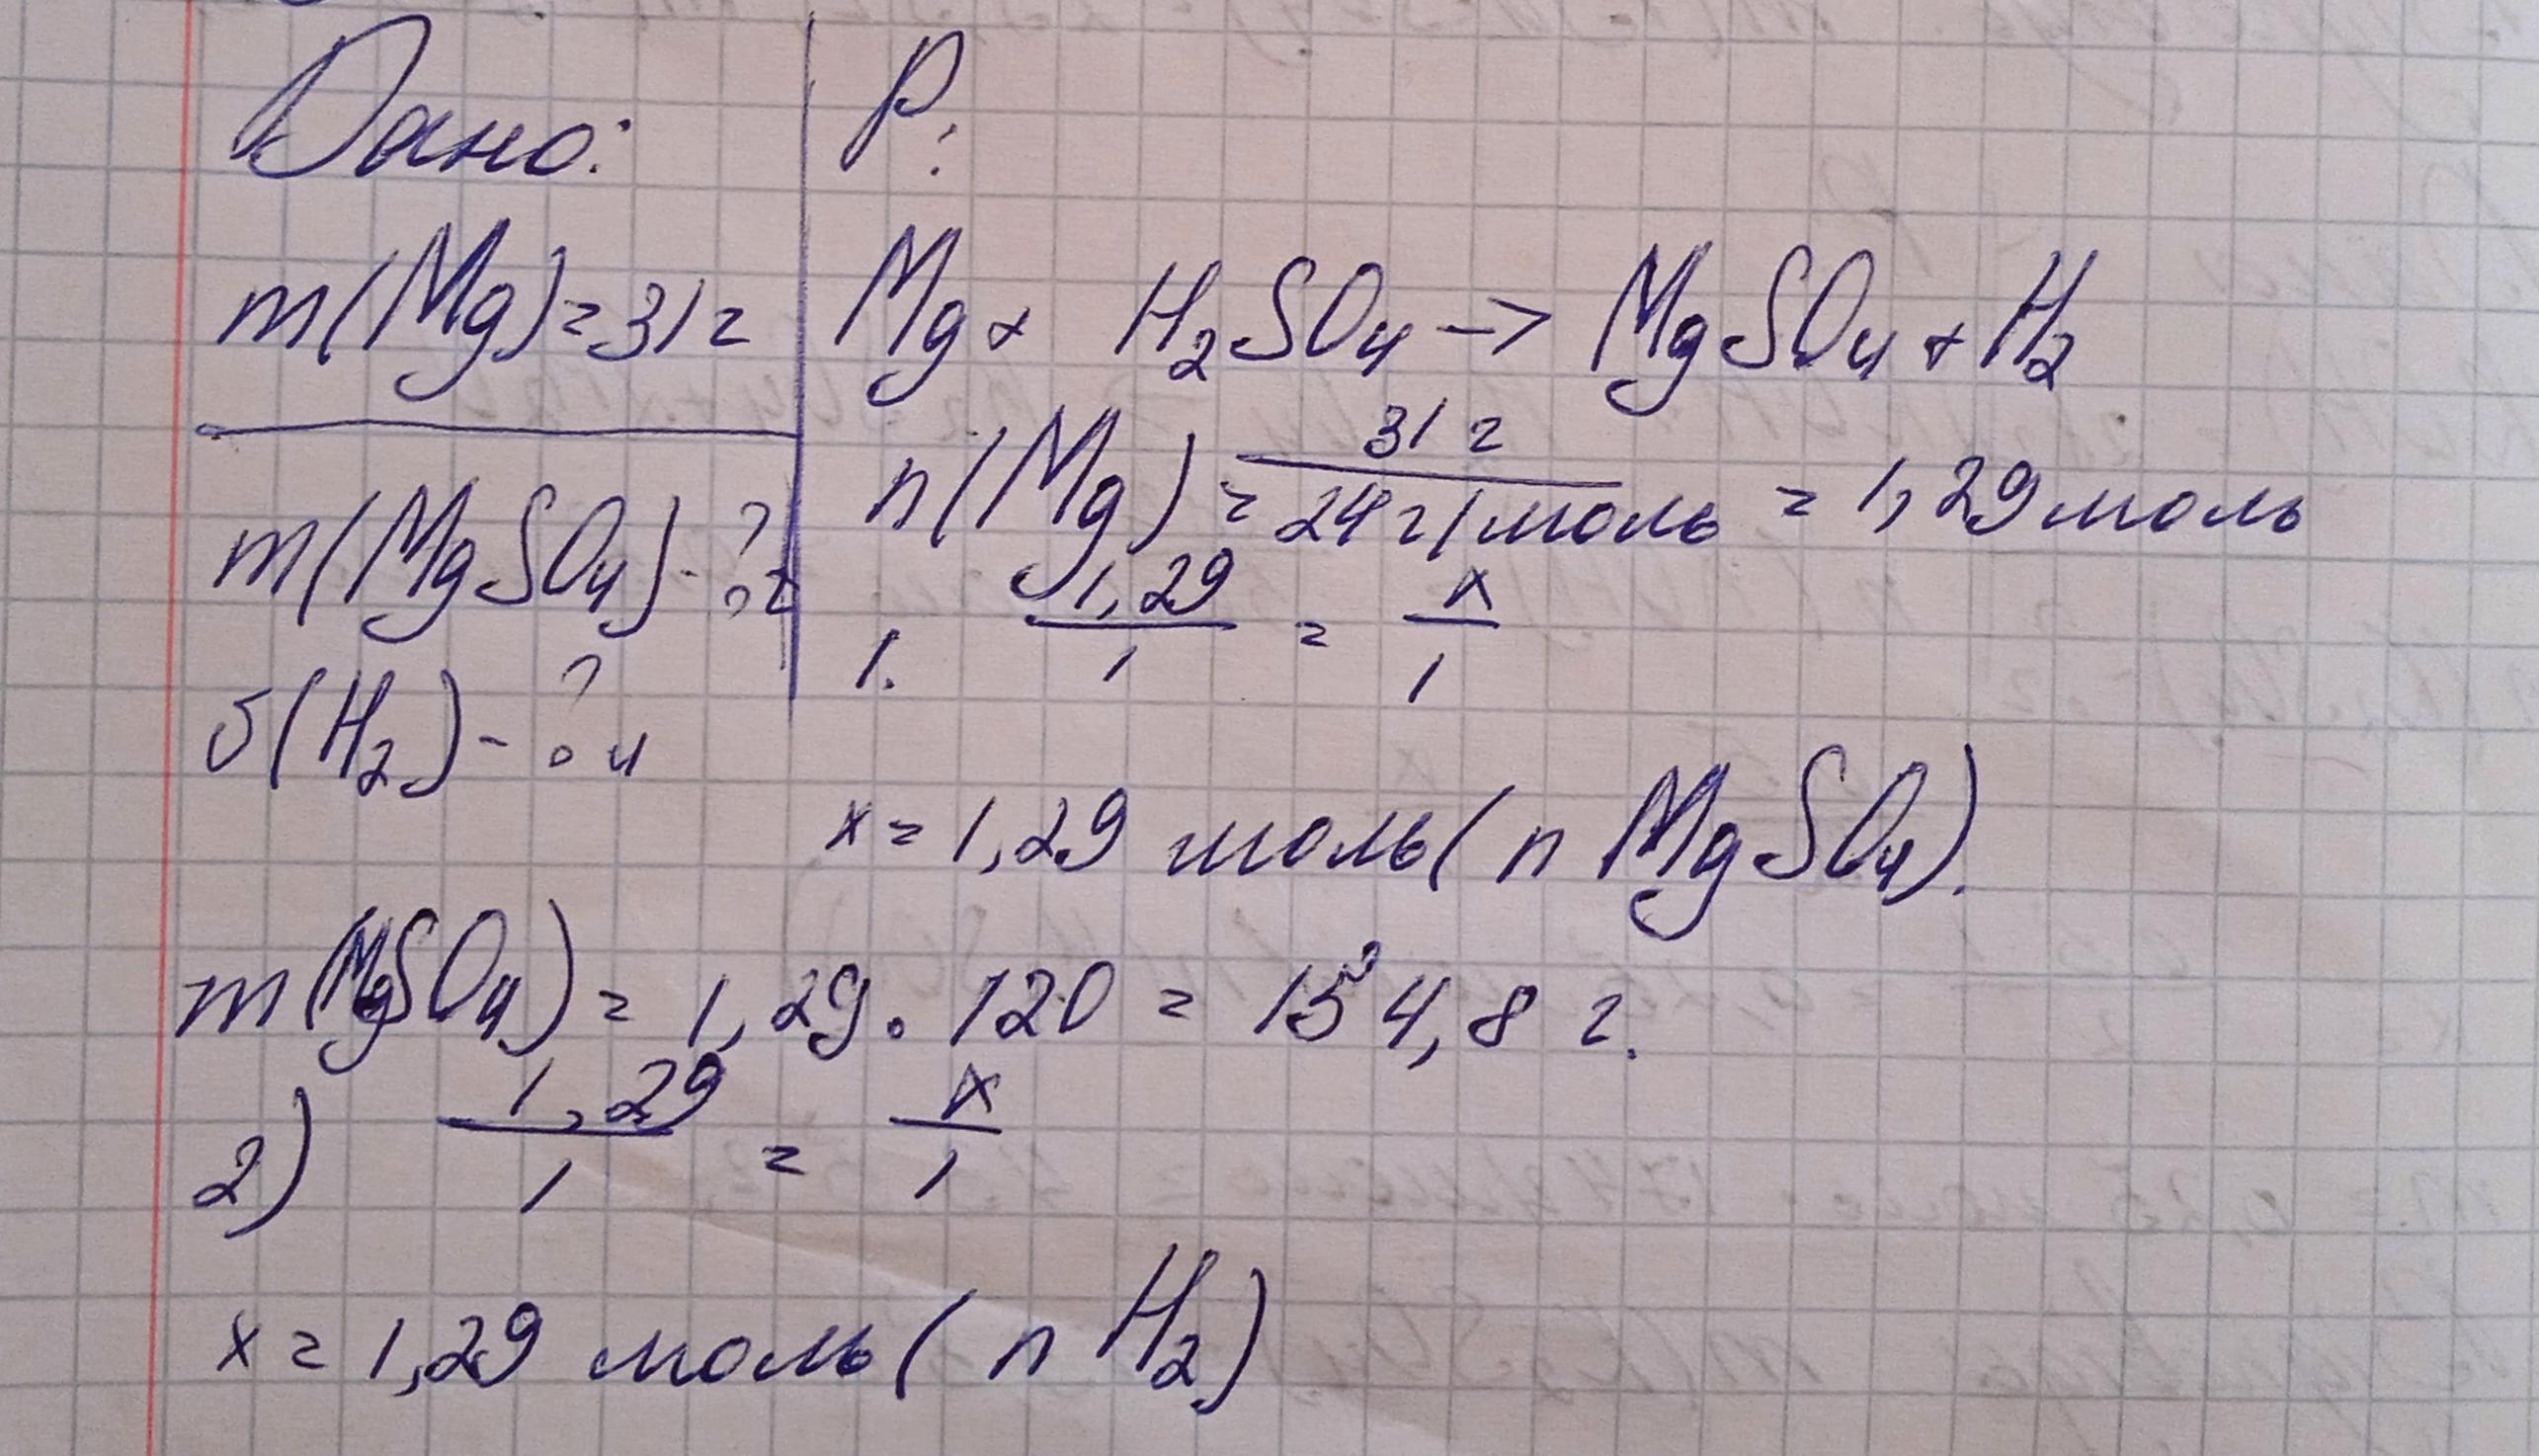 Дано:
m(Mg)=31г
m(MgSO4)-?г
P:
Mg + H2SO4 → MgSO4 + H2
n(Mg) = 31 г / 24 г/моль = 1,29 моль
1. 1,29 / 1 = x / 1
(H2)-?
x = 1,29 моль (n MgSO4).
m(MgSO4) = 1,29 · 120 = 154,8 г.
2) 1,29 / 1 = x / 1
x = 1,29 моль (n H2)